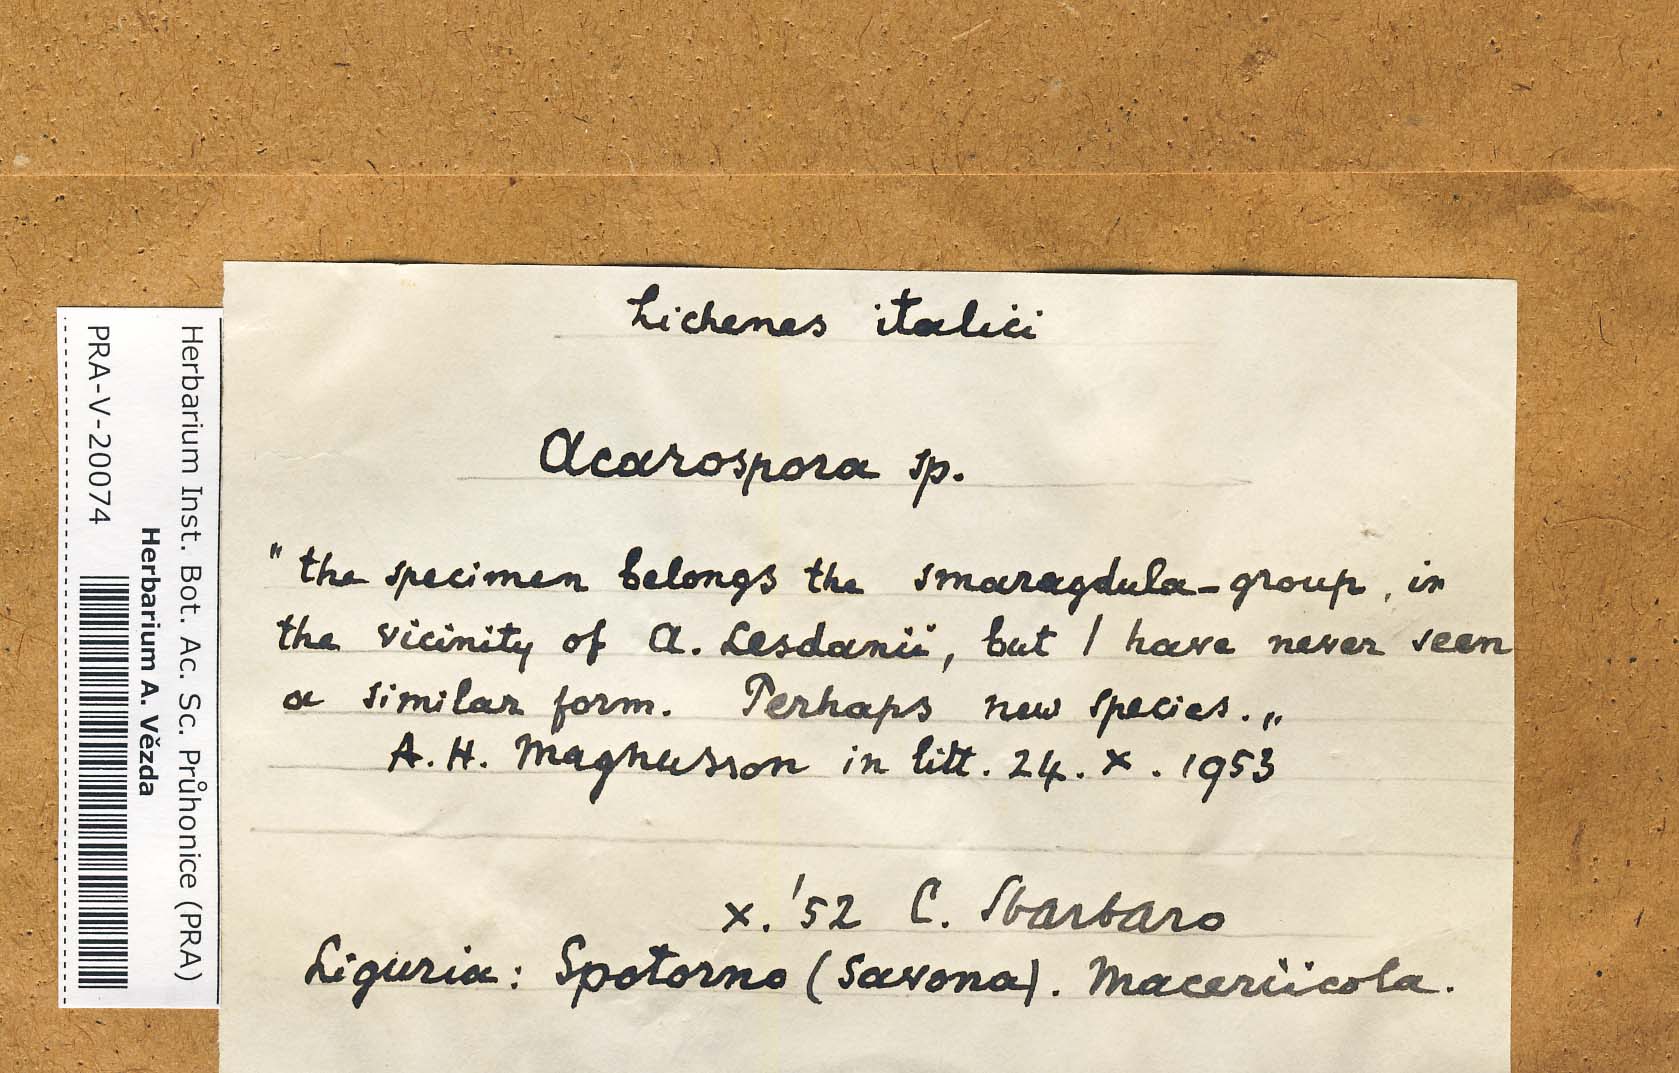 Herbarium Inst. Bot. Ac. Sc. Průhonice (PRA)
Herbarium A. Vězda
PRA-V-20074
Lichenes italici
Acarospora sp.
"the specimen belongs the smaragdula-group, in
the vicinity of A. Lesdanii, but I have never seen
a similar form. Perhaps new species.„
A. H. Magnusson in litt. 24. X. 1953
X. '52 C. Sbarbaro
Liguria: Spotorno (Savona). Maceriicola.